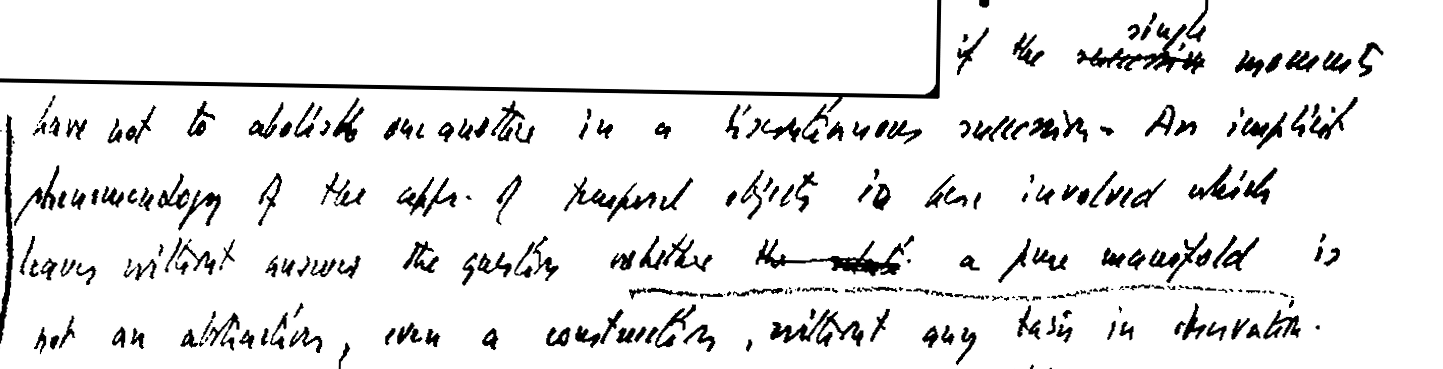 if the single moments
have not to abolish one another in a discontinuous succession. An implicit
phenomenology of the appr. of temporal objects is here involved which
leaves without answer the question whether a pure manifold is
not an abstraction, even a construction, without any basis in observation.